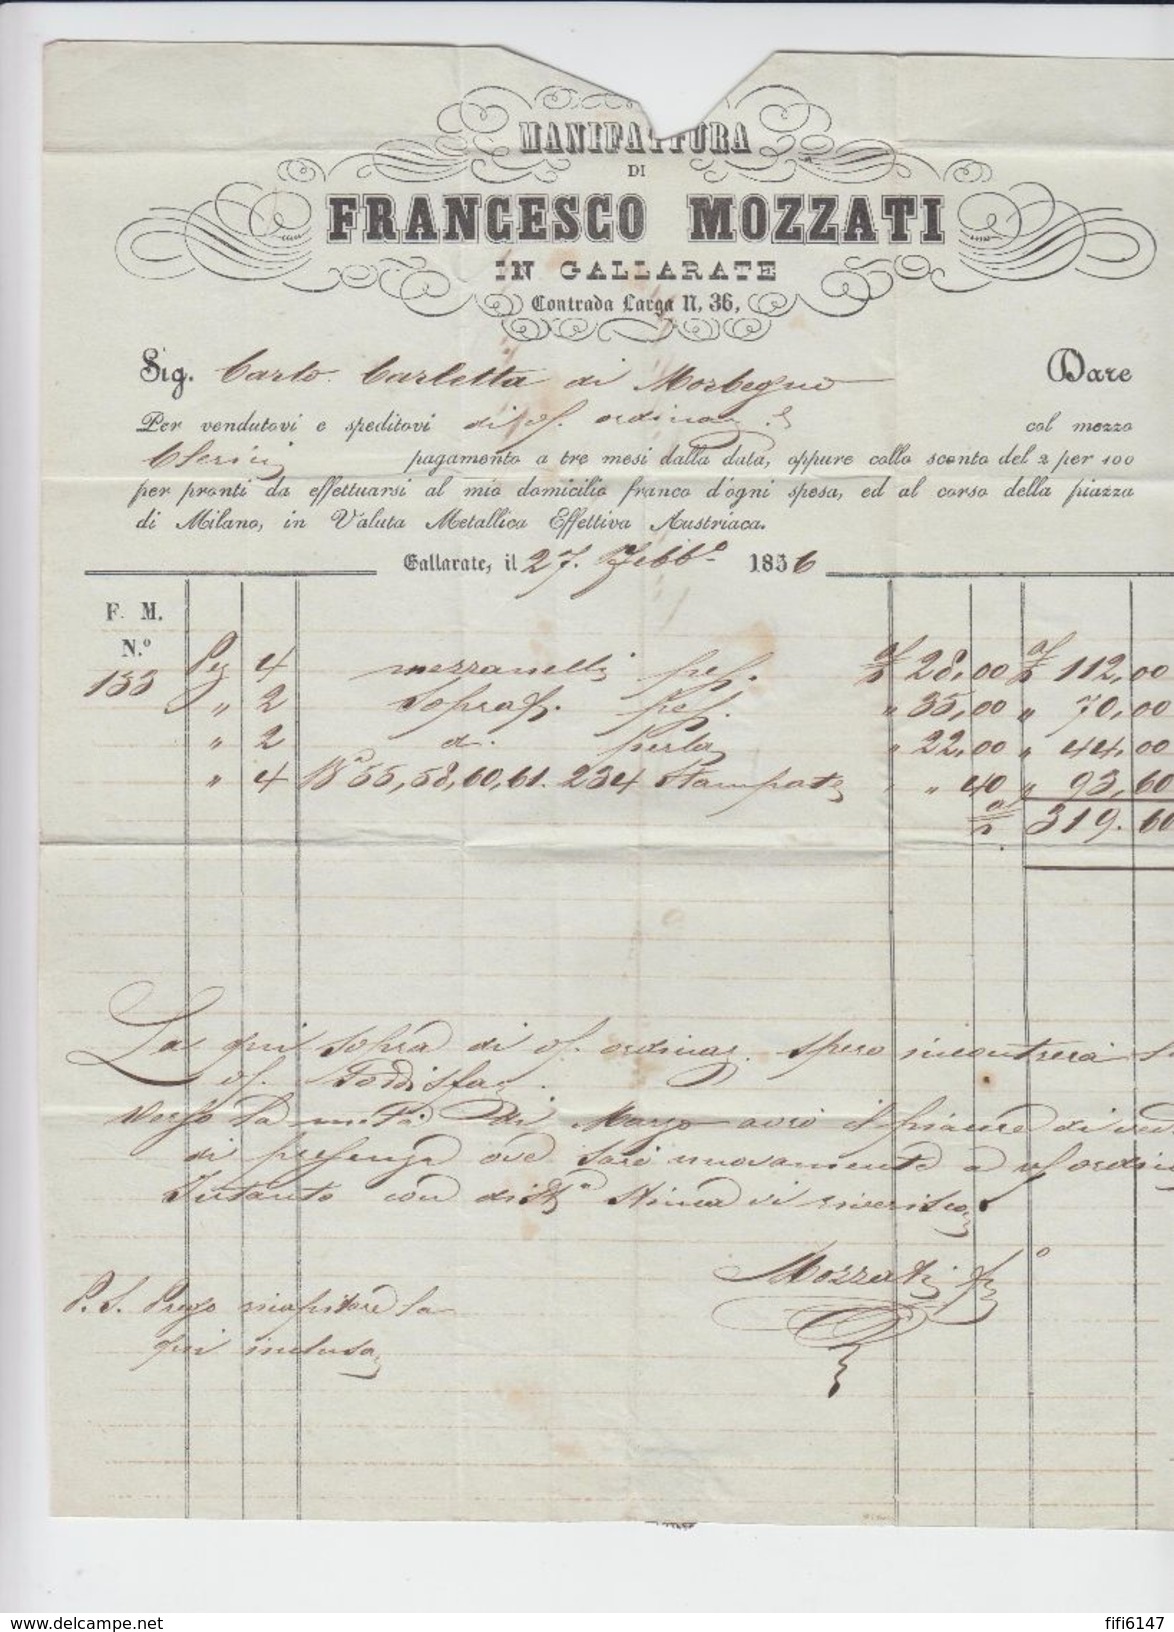 MANIFATTURA
DI
FRANCESCO MOZZATI
IN GALLARATE
Contrada Larga N. 36,
Sig. Carlo Carletta di Morbegno Dare
Per vendutovi e speditovi di vs. ordinaz.e col mezzo
Clerici pagamento a tre mesi dalla data, oppure collo sconto del 2 per 100
per pronti da effettuarsi al mio domicilio franco d'ogni spesa, ed al corso della piazza
di Milano, in Valuta Metallica Effettiva Austriaca.
Gallarate, il 27. Febb.o 1856
F. M.
N.o
133 Pez 4 mezzanelli 28,00 112,00
" 2 Sopraf. " 35,00 " 70,00
" 2 d. perla " 22,00 " 44,00
" 4 B.a 55, 58, 60, 61. 234 Stampate " " 40 " 93,60
319.60
La qui sopra di vs. ordinaz. spero incontrerà
vs. Soddisfaz.
Verso la metà di Marzo avrò il piacere di
di presenza ove sarò nuovamente a vs ordin
Intanto con dist.a Stima vi riverisco
Mozzati F.o
P.S. Prego ricapitare la
qui inclusa
fifi6147
www.delcampe.net